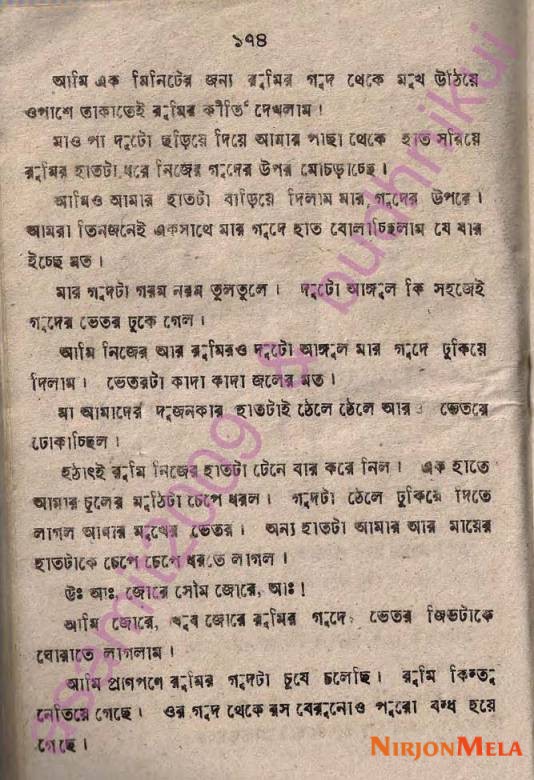 ১৭৪
আমি এক মিনিটের জন্য রুমির গুদ থেকে মুখ উঠিয়ে
ওপাশে তাকাতেই রুমির কীর্তি দেখলাম।
মাও পা দুটো ছড়িয়ে দিয়ে আমার পাছা থেকে হাত সরিয়ে
রুমির হাতটা ধরে নিজের গুদের উপর মোচড়াচ্ছে।
আমিও আমার হাতটা বাড়িয়ে দিলাম মার গুদের উপরে।
আমরা তিনজনেই একসাথে মার গুদে হাত বোলাচ্ছিলাম যে যার
ইচ্ছে মত।
মার গুদটা গরম নরম তুলতুলে। দুটো আঙ্গুল কি সহজেই
গুদের ভেতর ঢুকে গেল।
আমি নিজের আর রুমিরও দুটো আঙ্গুল মার গুদে ঢুকিয়ে
দিলাম। ভেতরটা কাদা কাদা জলের মত।
মা আমাদের দুজনকার হাতটাই ঠেলে ঠেলে আরও ভেতরে
ঢোকাচ্ছিল।
হঠাৎই রুমি নিজের হাতটা টেনে বার করে নিল। এক হাতে
আমার চুলের মুঠিটা চেপে ধরল। গুদটা ঠেলে ঢুকিয়ে দিতে
লাগল আমার মুখের ভেতর। অন্য হাতটা আমার আর মায়ের
হাতটাকে চেপে চেপে ধরতে লাগল।
উঃ আঃ, জোরে সোম জোরে, আঃ!
আমি জোরে, খুব জোরে রুমির গুদের ভেতর জিভটাকে
ঘোরাতে লাগলাম।
আমি প্রাণপণে রুমির গুদটা চুষে চলেছি। রুমি কিন্তু
নেতিয়ে গেছে। ওর গুদ থেকে রস বেরুনোও পুরো বন্ধ হয়ে
গেছে।
ssamit2009 & budhnikuj
NIRJONMELA